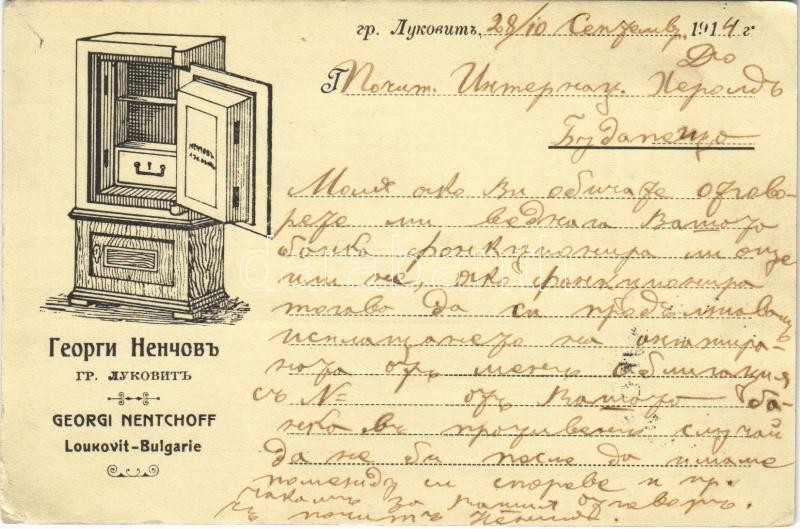 гр. Луковитъ, 28/10 Септемв. 1914 г
До
Почит. Интернац. Херолдъ
Будапеща
Моля ако Ви обичате отгово-
рете ми веднага Вашата
банка функционира ли още
или не, ако функционира
тогава да си продължавамъ
изплащането на
ната отъ менъ облигация
съ № отъ Вашата ба-
нка въ противенъ случай
да не би после да имаме
помежду си спорове и пр.
чакамъ за вашия отговоръ.
съ почитъ Ненчовъ
НЕНЧОВЪ
ЛУКОВИТЪ
Георги Ненчовъ
гр. Луковитъ
GEORGI NENTCHOFF
Loukovit-Bulgarie
darabanth